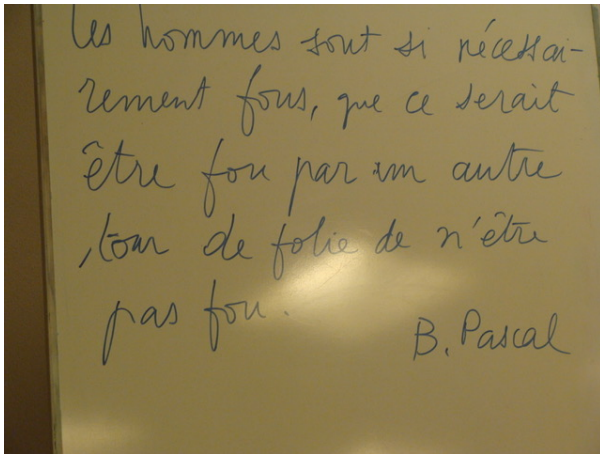 Les hommes sont si nécessai-
rement fous, que ce serait
être fou par un autre
tour de folie de n'être
pas fou.
B. Pascal